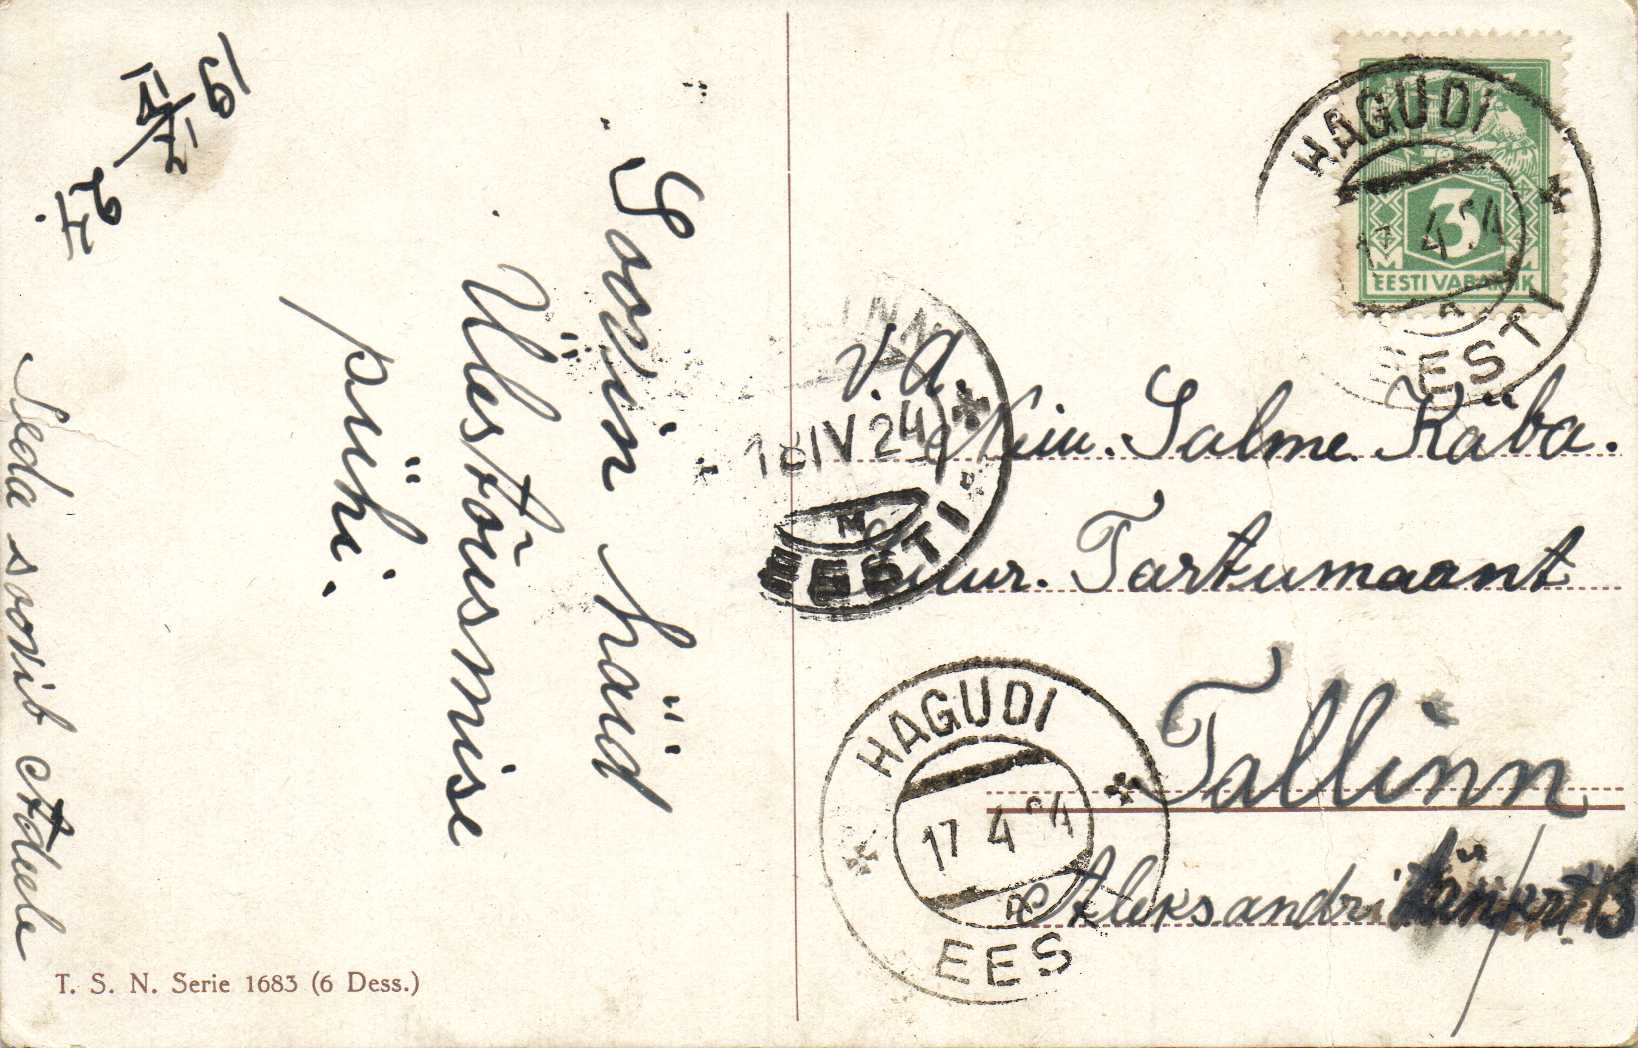 19 17/IV 24.
Soovin häid
Ülestõusmise
pühi.
Seda soovib Adele
T. S. N. Serie 1683 (6 Dess.)
HAGUDI
17 4 24
A
EESTI
3
EESTI VABARIIK
18 IV 24
EESTI
V. A
Neiu. Salme Käba.
Suur. Tartumaant
Tallinn
Aleksandri
HAGUDI
17 4 24
A
EES